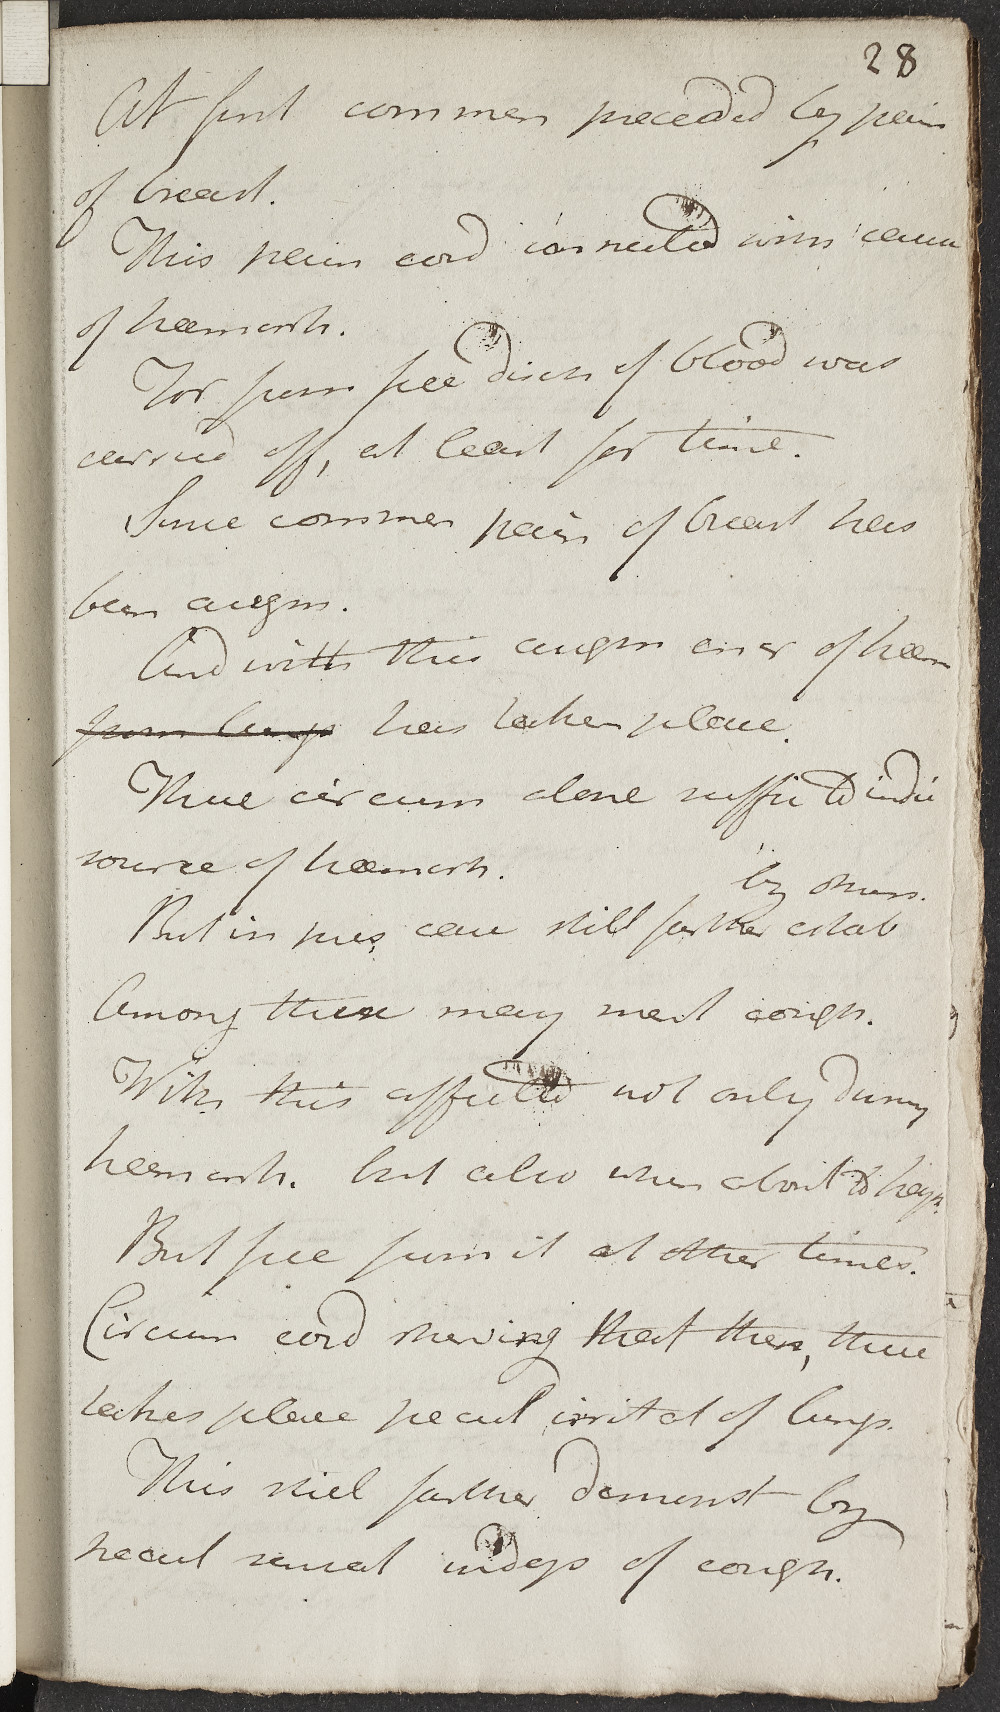 28
At first commen preceded by pain
of breast.
This pain cord connected with caus
of haemorrh.
For from free disch of blood was
carried off, at least for time.
Since commen pain of breast has
been augm.
And with this augm of haem
from lungs has taken place.
These circum alone suffic to indic
source of haemorrh.
by others.
But in pres case still farther estab
Among these may ment cough.
With this afflicted not only during
haemorrh. but also when about to happ.
But free from it at other times.
Circum cord shewing that then, there
takes place pecul irritat of lungs.
This still farther demonst by
pecul sensat indep of cough.